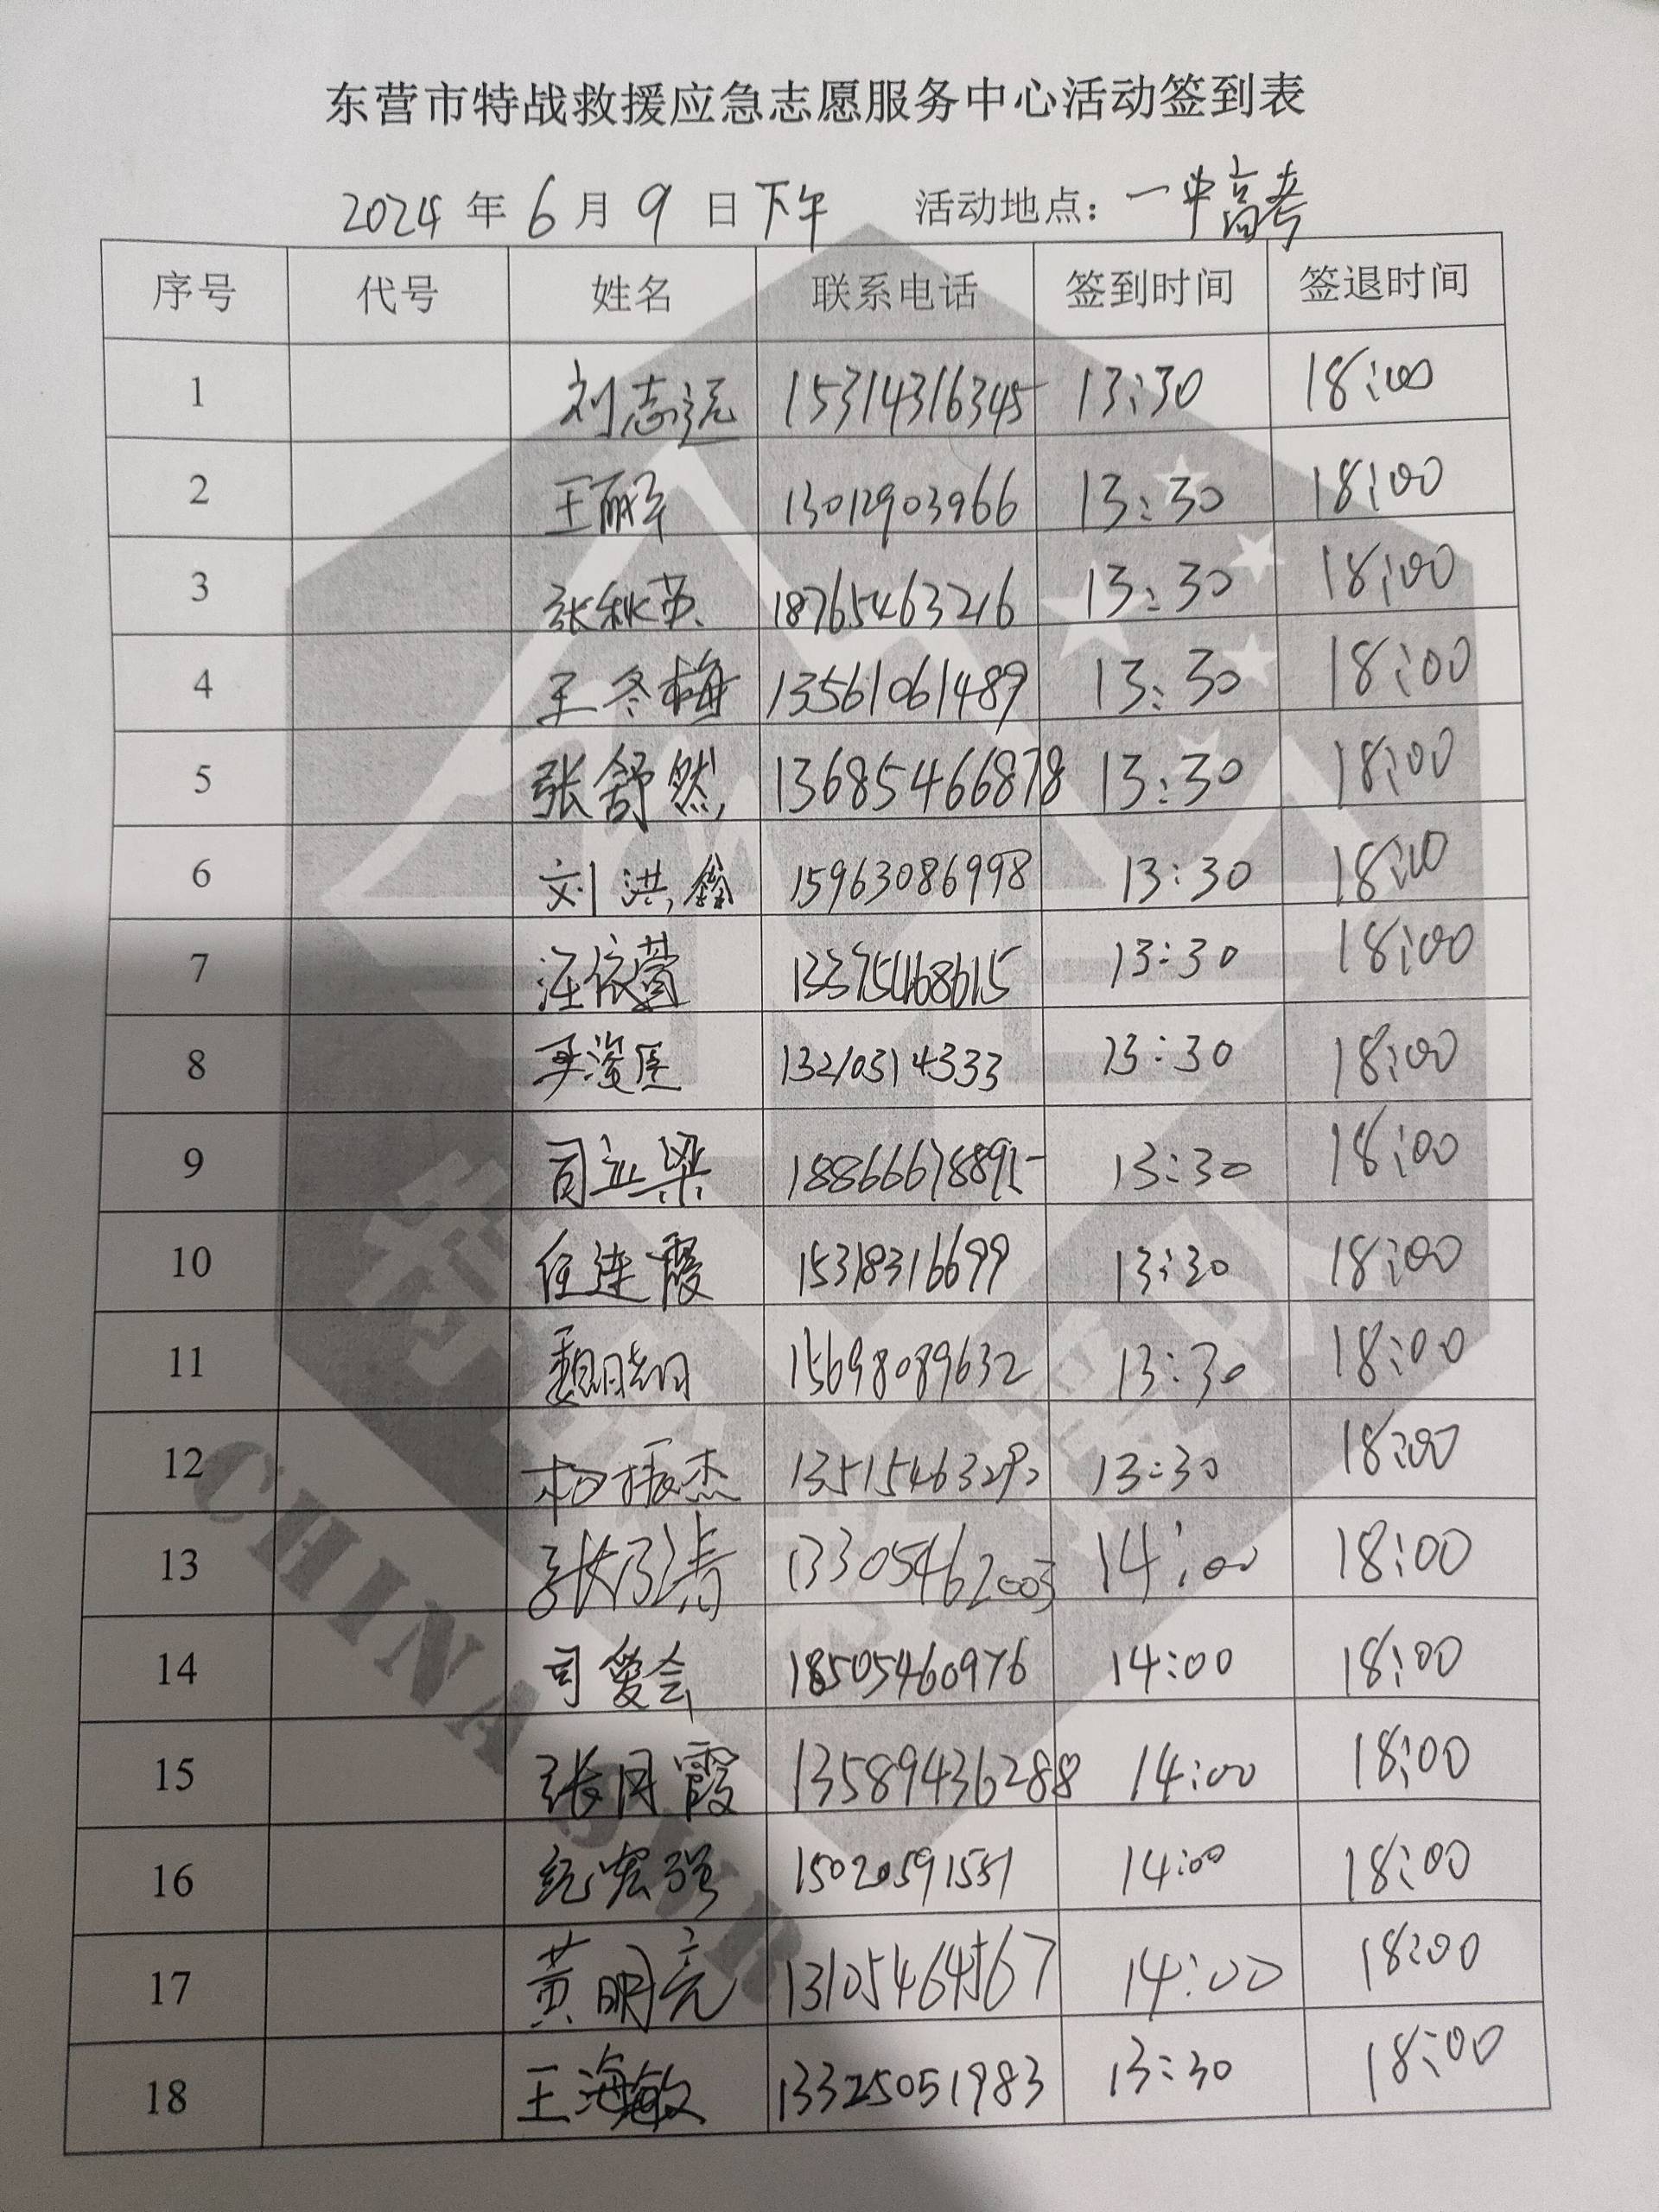 东营市特战救援应急志愿服务中心活动签到表
2024 年 6 月 9 日 下午 活动地点：一中高考
序号 代号 姓名 联系电话 签到时间 签退时间
1 刘志远 15314316345 13:30 18:00
2 王丽军 13012903966 13:30 18:00
3 张秋英 18765463216 13:30 18:00
4 王冬梅 13561061489 13:30 18:00
5 张舒然 13685466878 13:30 18:00
6 刘洪鑫 15963086998 13:30 18:00
7 汪依萱 13375468615 13:30 18:00
8 13210314333 13:30 18:00
9 司立梁 18866678891 13:30 18:00
10 任连霞 15318316699 13:30 18:00
11 魏晓翔 15698089632 13:30 18:00
12 杨振杰 13515463292 13:30 18:00
13 张乃涛 13305462003 14:00 18:00
14 司爱会 18505460976 14:00 18:00
15 张月霞 13589436288 14:00 18:00
16 纪宏强 15020591551 14:00 18:00
17 黄明亮 13105464567 14:00 18:00
18 王海敏 13325051983 13:30 18:00
CHINA SWR